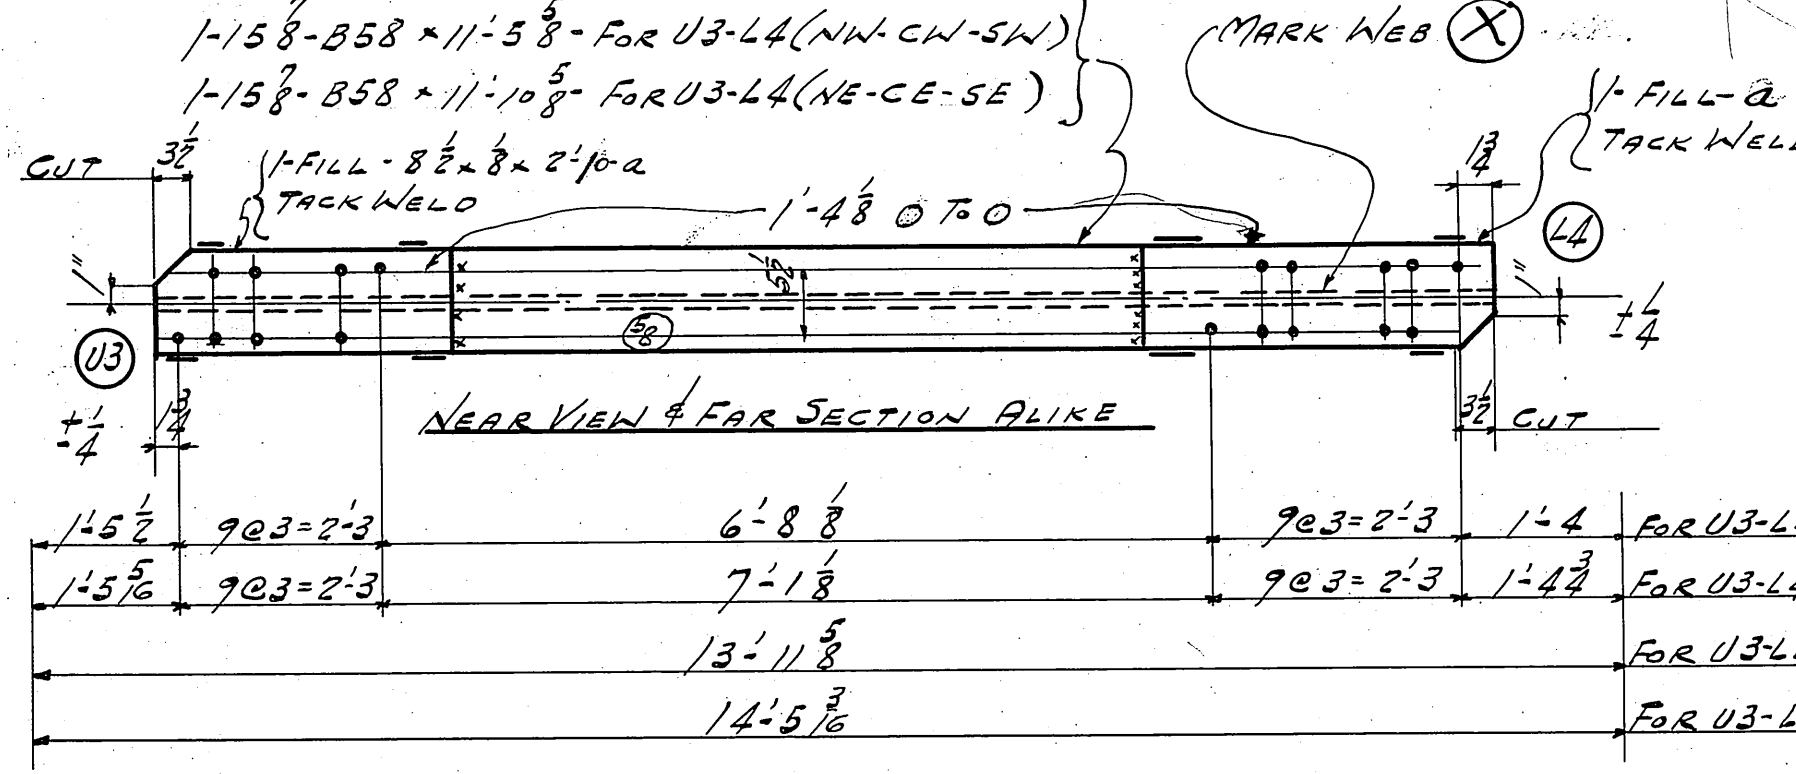 1-15 7/8-B58 × 11'-5 5/8 - FOR U3-L4 (NW-CW-SW)
1-15 7/8-B58 × 11'-10 5/8 - FOR U3-L4 (NE-CE-SE)
MARK WEB X
1-FILL-a
TACK WELD
CUT
3 1/2
1-FILL - 8 1/2 × 1/8 × 2'-10-a
TACK WELD
1'-4 1/8 O TO O
1 3/4
L4
1"
5 1/2
1"
5/8
U3
± 1/4
± 1/4
1 3/4
NEAR VIEW & FAR SECTION ALIKE
3 1/2
CUT
1'-5 1/2 9@3=2'-3 6'-8 1/8 9@3=2'-3 1'-4 FOR U3-L
1'-5 5/16 9@3=2'-3 7'-1 1/8 9@3=2'-3 1'-4 3/4 FOR U3-L4
13'-11 5/8 FOR U3-L
14'-5 3/16 FOR U3-L